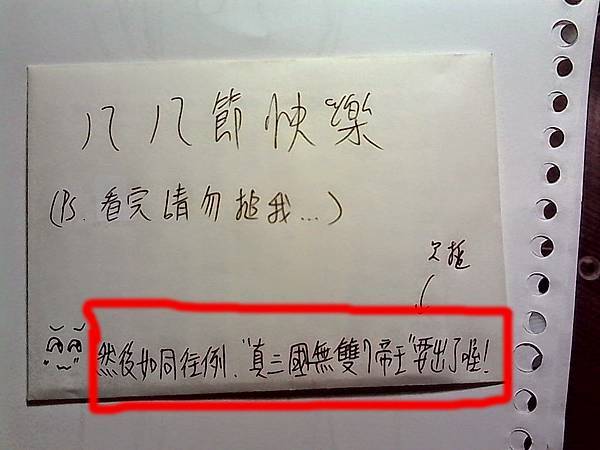 八八節快樂
(Ps. 看完請勿扁我...)
欠扁
然後如同往例、"真三國無雙7帝王"要出了喔!